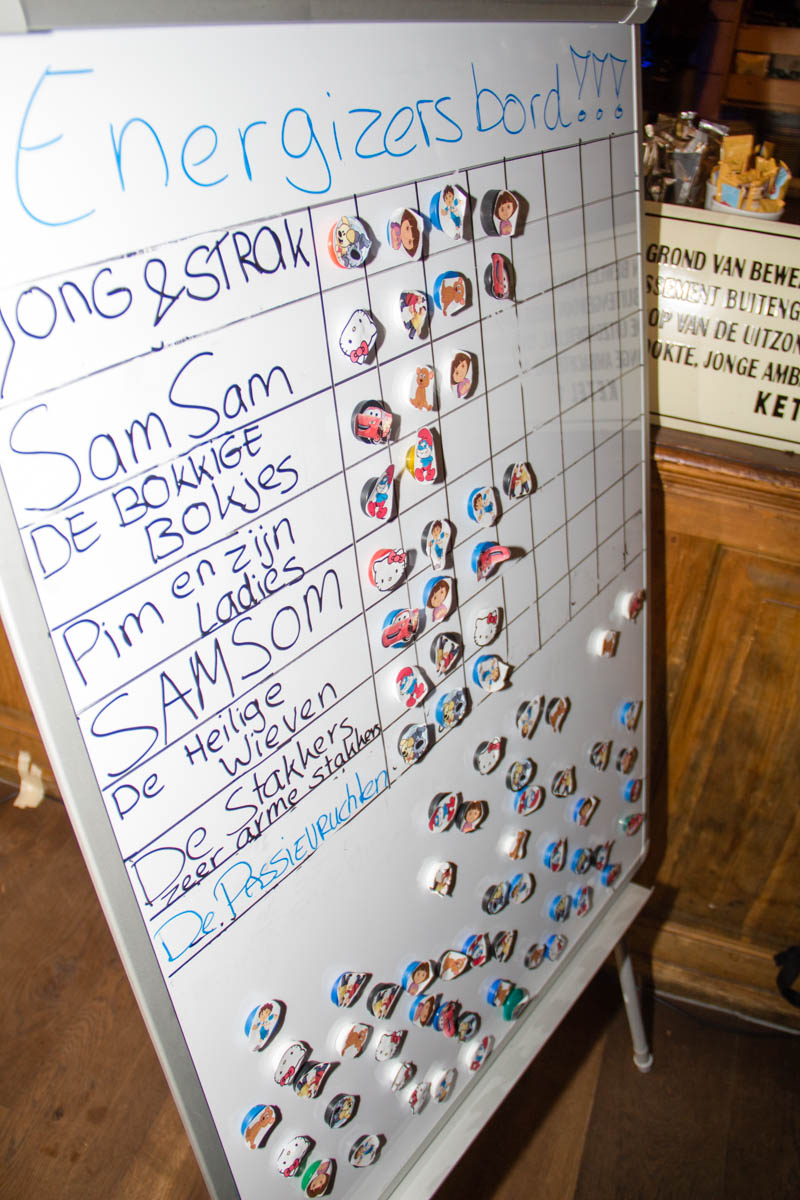 Energizersbord!!!
JONG & STRAK
SamSam
DE BOKKIGE
BOKJES
Pim en zijn
LADIES
SAMSOM
De Heilige
Wieven
De Stakkers
zeer arme stakkers
De PASSIEVRUCHTEN
GROND VAN BEWE
SSEMENT BUITENG
OP VAN DE UITZON
OOKTE, JONGE AMB
KET